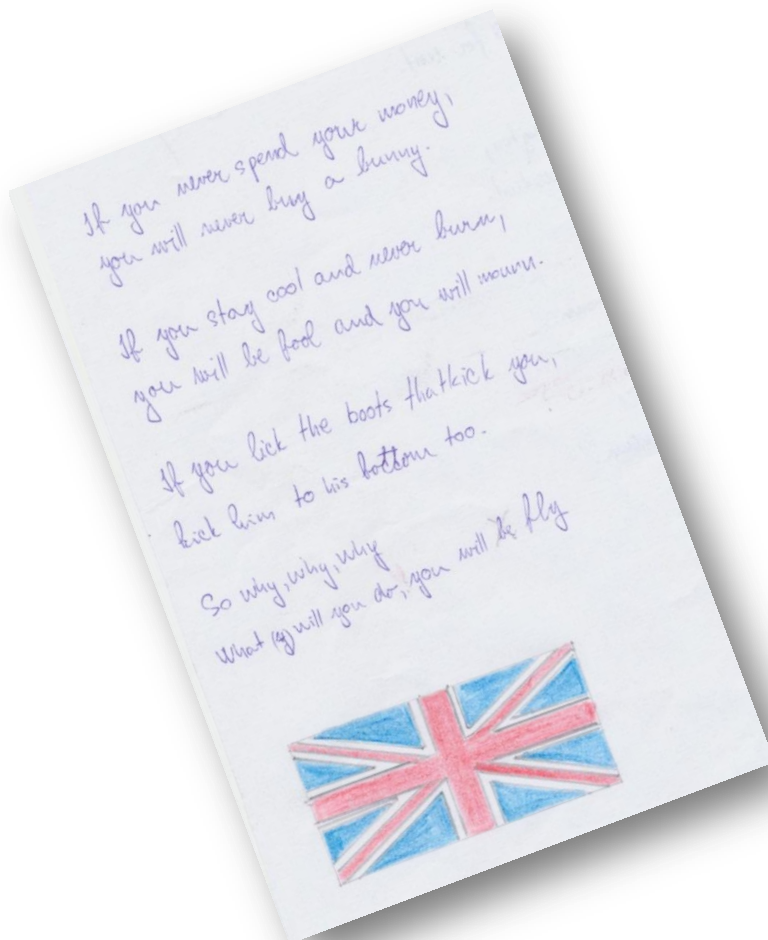 If you never spend your money,
you will never buy a bunny.
If you stay cool and never burn,
you will be fool and you will mourn.
If you lick the boots thatkick you,
kick him to his bottom too.
So why, why, why
What will you do, you will be fly